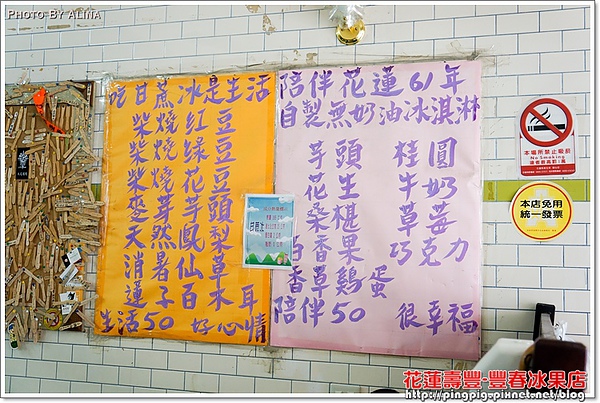 PHOTO BY ALINA
吃甘蔗冰是生活
柴燒紅豆
柴燒綠豆
柴燒花豆
麥芽芋頭
天然鳳梨
消暑仙草
蓮子百木耳
生活50 好心情
陪伴花蓮61年
自製無奶油冰淇淋
芋頭 桂圓
花生 牛奶
桑椹 草莓
百香果 巧克力
香草雞蛋
陪伴50 很幸福
本場所禁止吸菸
No Smoking
本店免用
統一發票
花蓮壽豐-豐春冰果店
http://pingpig.pixnet.net/blog